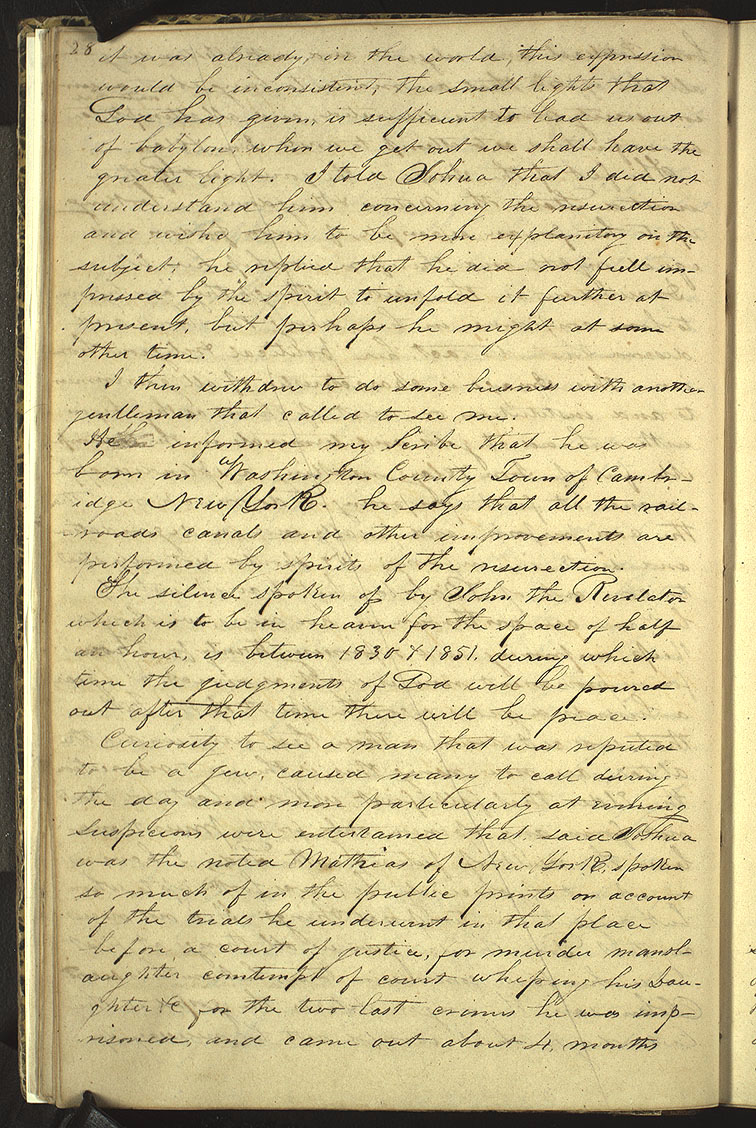 28
it was already, in the world, this expression
would be inconsistent, the small lights that
God has given, is sufficient to lead us out
of babylon, when we get out we shall have the
greater light. I told Johua that I did not
understand him concerning the resurection
and wishd him to be more explanitory on the
subject; he replied that he did not feell im-
pressed by the spirit to unfold it further at
present, but perhaps he might at some
other time.
I then withdrew to do some buisness with another
gentleman that called to see me.
He informed my Scribe that he was
born in Washington County Town of Camb-
ridge New York. he says that all the rail-
roads canals and other improvements are
performed by spirits of the resurection.
The silence spoken of by John the Revelator
which is to be in heaven for the space of half
an hour, is between 1830 & 1851, during which
time the judgments of God will be poured
out after that time there will be peace.
Curiosity to see a man that was reputed
to be a jew, caused many to call during
the day and more particularly at evening
suspicions were entertained that said Joshua
was the noted Mathias of New York, spoken
so much of in the public prints on account
of the trials he underwent in that place
before a court of justice, for murder mansl-
aughter comtempt of court whiping his Dau-
ghter &c for the two last crimes he was imp-
risoned, and came out about 4, months